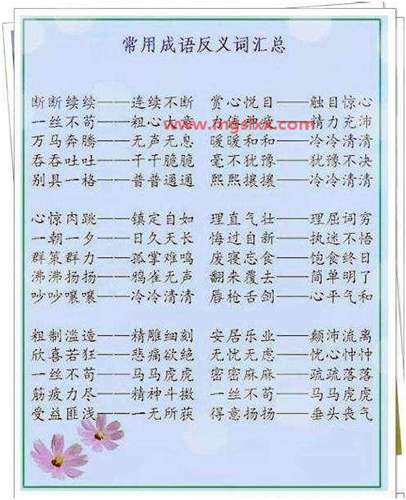 常用成语反义词汇总
断断续续——连续不断 赏心悦目——触目惊心
一丝不苟——粗心大意 力倦神疲——精力充沛
万马奔腾——无声无息 暖暖和和——冷冷清清
吞吞吐吐——干干脆脆 毫不犹豫——犹豫不决
别具一格——普普通通 熙熙攘攘——冷冷清清
心惊肉跳——镇定自如 理直气壮——理屈词穷
一朝一夕——日久天长 悔过自新——执迷不悟
群策群力——孤掌难鸣 废寝忘食——饱食终日
沸沸扬扬——鸦雀无声 翻来覆去——简单明了
吵吵嚷嚷——冷冷清清 唇枪舌剑——心平气和
粗制滥造——精雕细刻 安居乐业——颠沛流离
欣喜若狂——悲痛欲绝 无忧无虑——忧心忡忡
一丝不苟——马马虎虎 密密麻麻——疏疏落落
筋疲力尽——精神抖擞 一丝不苟——马马虎虎
受益匪浅——一无所获 得意扬扬——垂头丧气